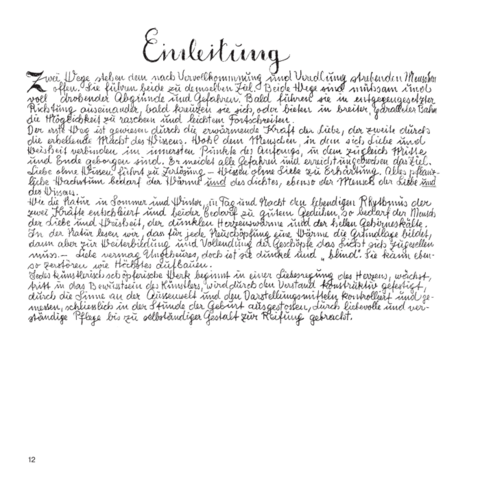 Einleitung
Zwei Wege stehen dem nach Vervollkommnung und Veredlung strebenden Menschen
offen. Sie führen beide zu demselben Ziel. Beide Wege sind mühsam und
voll drohender Abgründe und Gefahren. Bald führen sie in entgegengesetzter
Richtung auseinander, bald kreuzen sie sich, oder bieten in breiter, geradliniger Bahn
die Möglichkeit zu raschem und leichtem Fortschreiten.
Der erste Weg ist gewiesen durch die erwärmende Kraft der Liebe, der zweite durch
die erhellende Macht des Wissens. Wohl dem Menschen, in dem sich Liebe und
Weisheit verbinden im innersten Punkte des Anfangs, in dem zugleich Mitte
und Ende geborgen sind. Er meidet alle Gefahren und erreicht ungebrochen das Ziel.
Liebe ohne Wissen führt zu Zerlösung – Wissen ohne Liebe zu Erhärtung. Alles pflanz-
liche Wachstum bedarf der Wärme und des Lichtes, ebenso der Mensch der Liebe und
des Wissens.
Wie die Natur in Sommer und Winter, in Tag und Nacht den lebendigen Rhythmus der
zwei Kräfte entschleiert und beider bedarf zu gutem Gedeihen, so bedarf der Mensch
der Liebe und Weisheit, der dunklen Herzenswärme und der hellen Gehirneskälte.
In der Natur lesen wir, dass für jede Neuschöpfung eine Wärme die Grundlage bildet,
dann aber zur Weiterbildung und Vollendung der Geschöpfe das Licht sich zugesellen
muss. – Liebe vermag Ungeheures, doch ist sie dunkel und „blind". Sie kann eben-
so zerstören wie Höchstes aufbauen.
Jedes künstlerisch schöpferische Werk beginnt in einer Liebesregung des Herzens, wächst,
tritt in das Bewusstsein des Künstlers, wird durch den Verstand konstruktiv gefestigt,
durch die Sinne an der Aussenwelt und den Darstellungsmitteln kontrolliert und ge-
messen, schliesslich in der Stunde der Geburt ausgestossen, durch liebevolle und ver-
ständige Pflege bis zu selbständiger Gestalt zur Reifung gebracht.
12